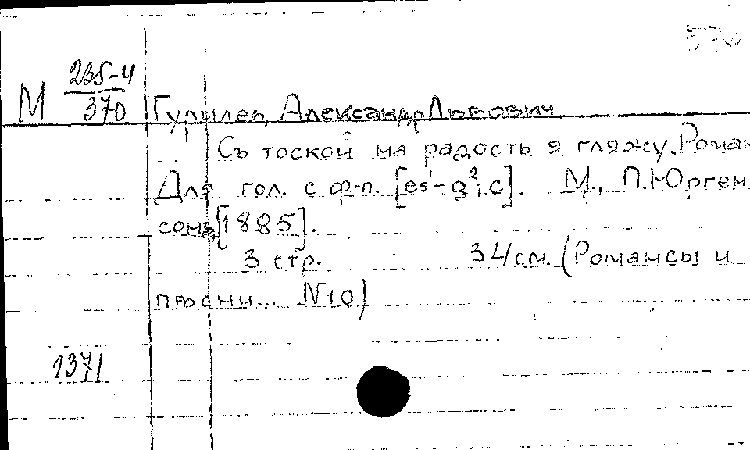 570
М 235-4/370
Гурилев, Александр Львович
Съ тоской на радость я гляжу. Роман
Для гол. с ф-п. [es¹-g²; c]. М., П. Юрген
сонъ [1885].
3 стр. 34 см. (Романсы и
песни... N10)
1371